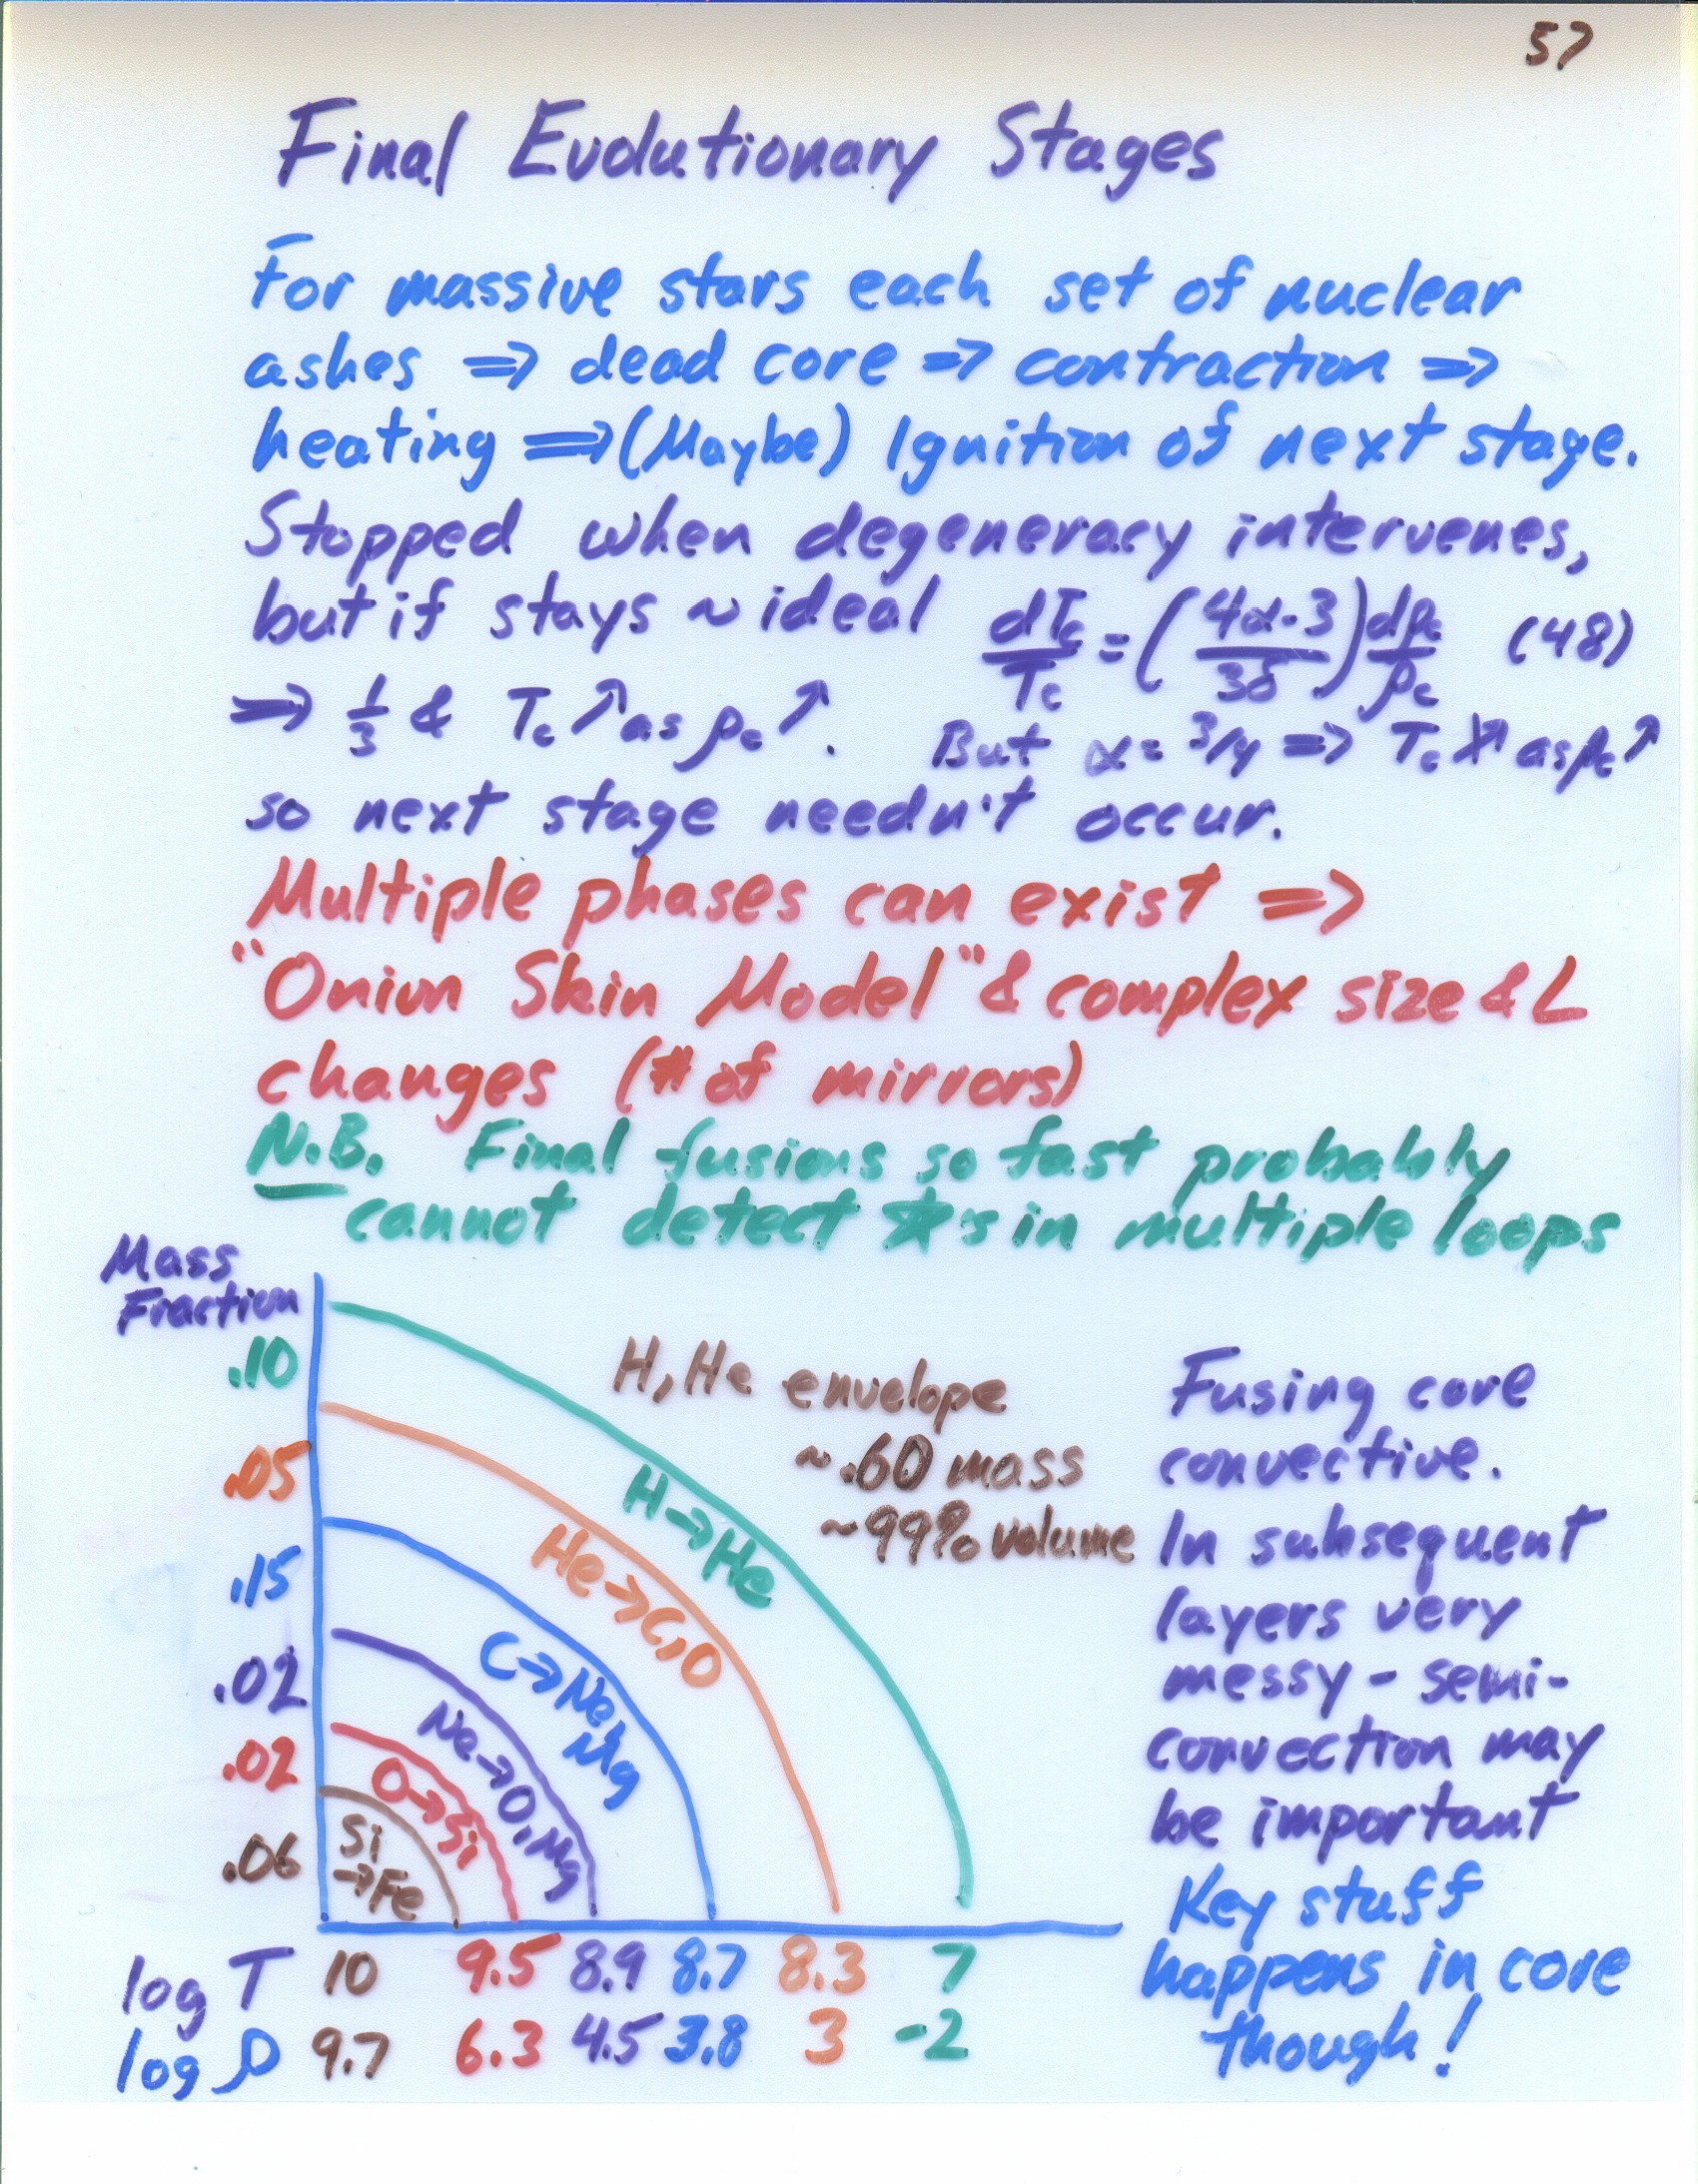 57
Final Evolutionary Stages
For massive stars each set of nuclear
ashes ⇒ dead core ⇒ contraction ⇒
heating ⇒ (Maybe) Ignition of next stage.
Stopped when degeneracy intervenes,
but if stays ~ ideal dTc/Tc = ((4α-3)/3δ) dρc/ρc (48)
⇒ 1/3 & Tc ↗ as ρc ↗. But α = 3/4 ⇒ Tc ↗̸ as ρc ↗
so next stage needn't occur.
Multiple phases can exist ⇒
"Onion Skin Model" & complex size & L
changes (# of mirrors)
N.B. Final fusions so fast probably
cannot detect ★s in multiple loops
Mass
Fraction
.10
.05
.15
.02
.02
.06
H, He envelope
~.60 mass
~99% volume
H→He
He→C,O
C→Ne,
Mg
Ne→O,Mg
O→Si
Si
→Fe
log T 10 9.5 8.9 8.7 8.3 7
log ρ 9.7 6.3 4.5 3.8 3 -2
Fusing core
convective.
In subsequent
layers very
messy - semi-
convection may
be important
Key stuff
happens in core
though!